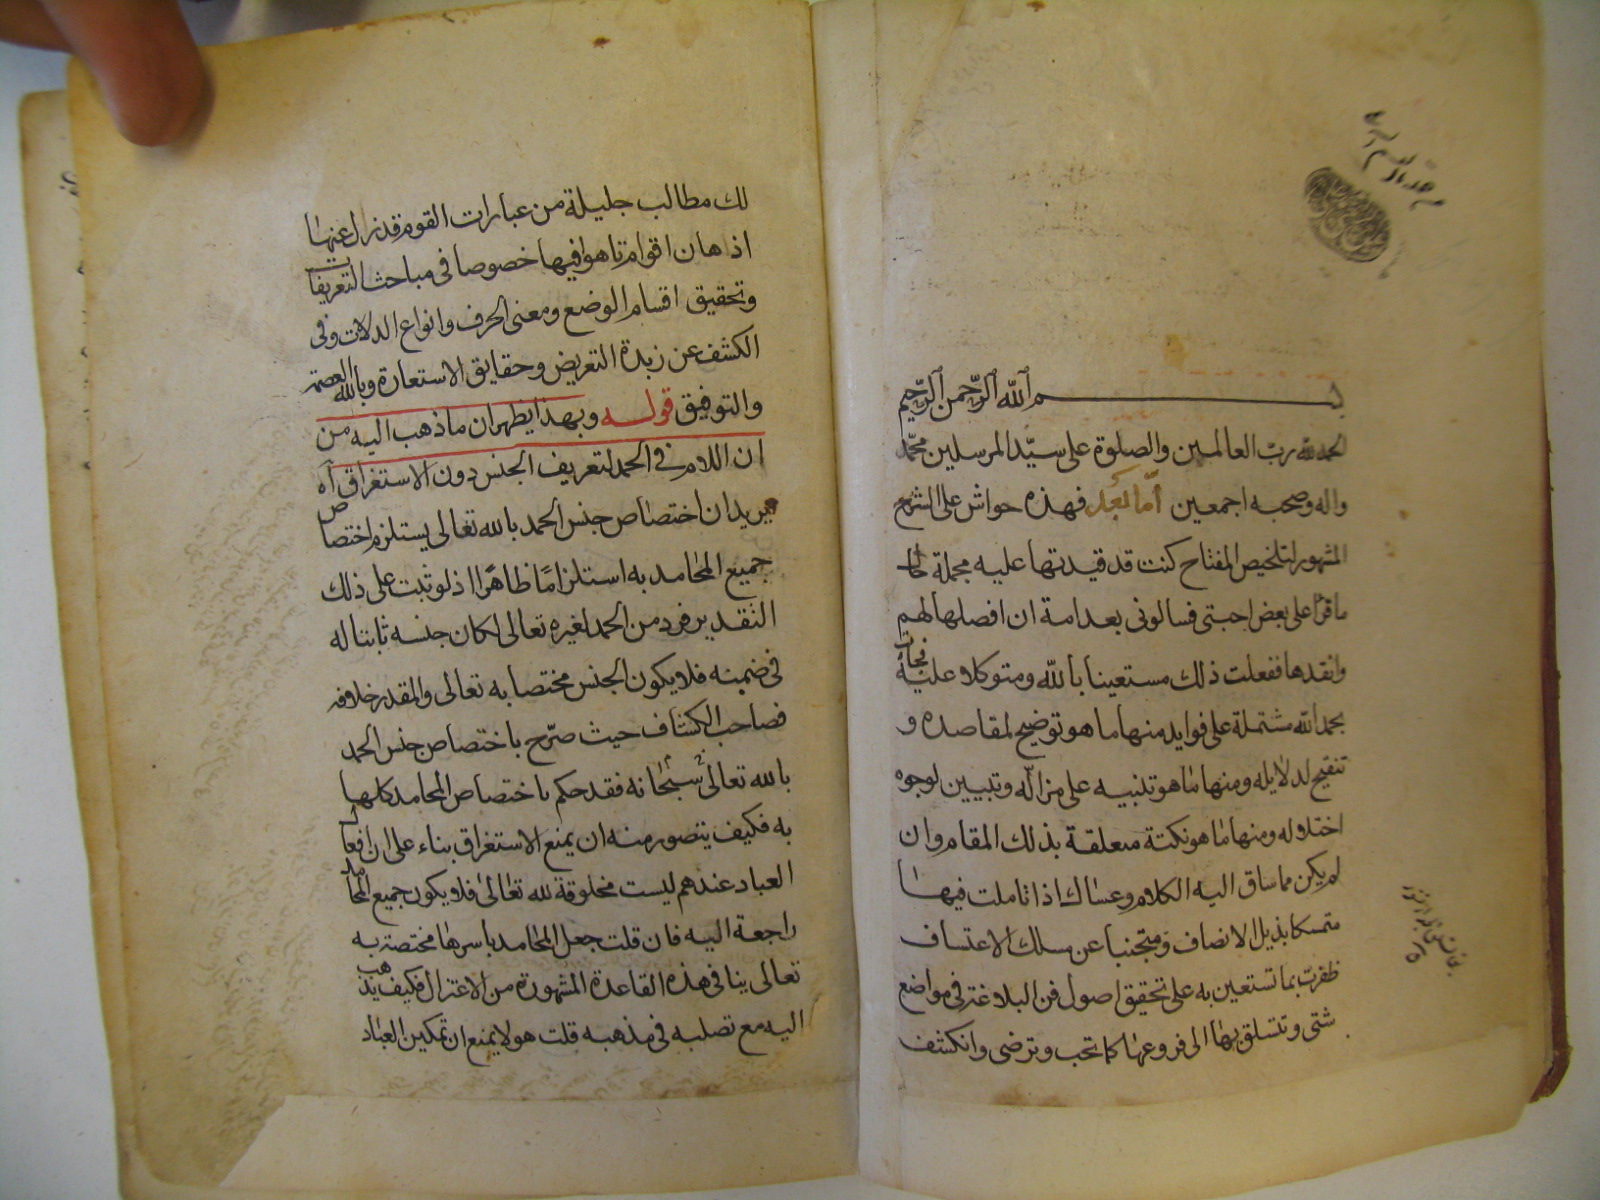 بسم الله الرحمن الرحيم
الحمد لله رب العالمين والصلوة على سيد المرسلين محمد
واله وصحبه اجمعين اما بعد فهذه حواش على الشرح
المشهور لتلخيص المفتاح كنت قد قيدتها عليه مجملة حال
ما قرأ على بعض احبتى فسالونى بعد امة ان افصلها لهم
وانقدها ففعلت ذلك مستعينا بالله ومتوكلا عليه فجاءت
بحمد الله مشتملة على فوايد منها ما هو توضيح لمقاصده و
تنقيح لدلايله ومنها ما هو تنبيه على مزاله وتبيين لوجوه
اختلاله ومنها ما هو نكتة متعلقة بذلك المقام وان
لم يكن مما ساق اليه الكلام وعساك اذا تاملت فيها
متمسكا بذيل الانصاف ومتجنبا عن مسلك الاعتساف
ظفرت بما تستعين به على تحقيق اصول فن البلاغة فى مواضع
شتى وتتسلق بها الى فروعها كما تحب وترضى وانكشف
لك مطالب جليلة من عبارات القوم قد زل عنها
اذهان اقوام تاهوا فيها خصوصا فى مباحث التعريفات
وتحقيق اقسام الوضع ومعنى الحرف وانواع الدلالات وفى
الكشف عن زبدة التعريض وحقايق الاستعارة وبالله العصمة
والتوفيق قوله وبهذا يظهر ان ما ذهب اليه من
ان اللام فى الحمد لتعريف الجنس دون الاستغراق اه
يريد ان اختصاص جنس الحمد بالله تعالى يستلزم اختصاص
جميع المحامد به استلزاما ظاهرا اذ لو ثبت على ذلك
التقدير فرد من الحمد لغيره تعالى لكان جنسه ثابتا له
فى ضمنه فلا يكون الجنس مختصا به تعالى والمقدر خلافه
فصاحب الكشاف حيث صرح باختصاص جنس الحمد
بالله تعالى سبحانه فقد حكم باختصاص المحامد كلها
به فكيف يتصور منه ان يمنع الاستغراق بناء على ان افعال
العباد عندهم ليست مخلوقة لله تعالى فلا يكون جميع المحامد
راجعة اليه فان قلت جعل المحامد باسرها مختصة به
تعالى ينافى هذه القاعدة المشهورة من الاعتزال فكيف يذهب
اليه مع تصلبه فى مذهبه قلت هو لا يمنع ان تمكين العباد